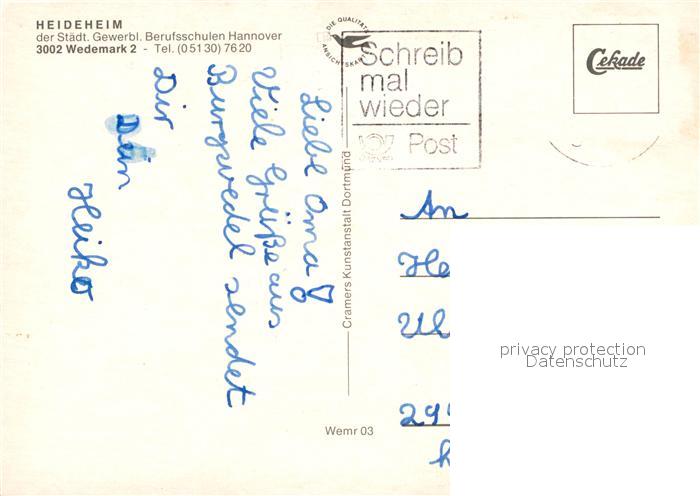 HEIDEHEIM
der Städt. Gewerbl. Berufsschulen Hannover
3002 Wedemark 2 - Tel. (05130) 7620
DIE QUALITÄTS
ANSICHTSKARTE
Schreib
mal
wieder
Post
Cekade
Liebe Oma!
Viele Grüße aus
Burgwedel sendet
Dir
Dein
Heiko
Cramers Kunstanstalt Dortmund
Wemr 03
An
He
Ul
29
privacy protection
Datenschutz